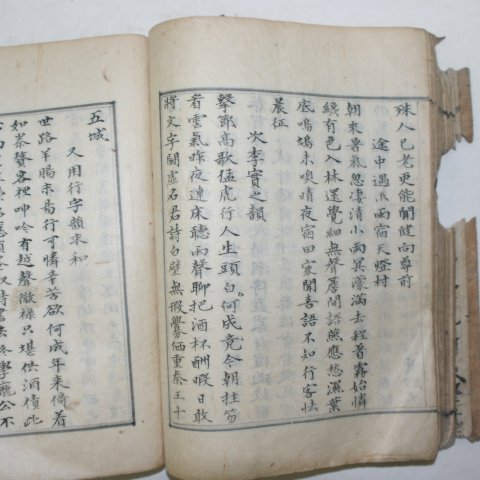 殊人已老更能閒健向尊前
途中遇雨宿天燈村
朝來爽氣忽凄清小雨冥濛滿去程着霧始憐
總有色入林還覺細無聲塵間語無應愁濕葉
底鳴鳩未喚晴夜宿田家聞吉語不知行客怯
晨征
次李實之韻
擊節高歌猛虎行人生頭白何成竟今朝拄笏
看雲氣昨夜連床聽雨聲聊把酒杯酬暇日敢
將文字鬪虛名君詩白璧無瑕釁価重秦王十
五城
又用行字韻求和
世路羊腸未易行可憐辛苦欲何成年來倚着
如秦贅客裡呻吟有越聲微祿只堪供酒債此